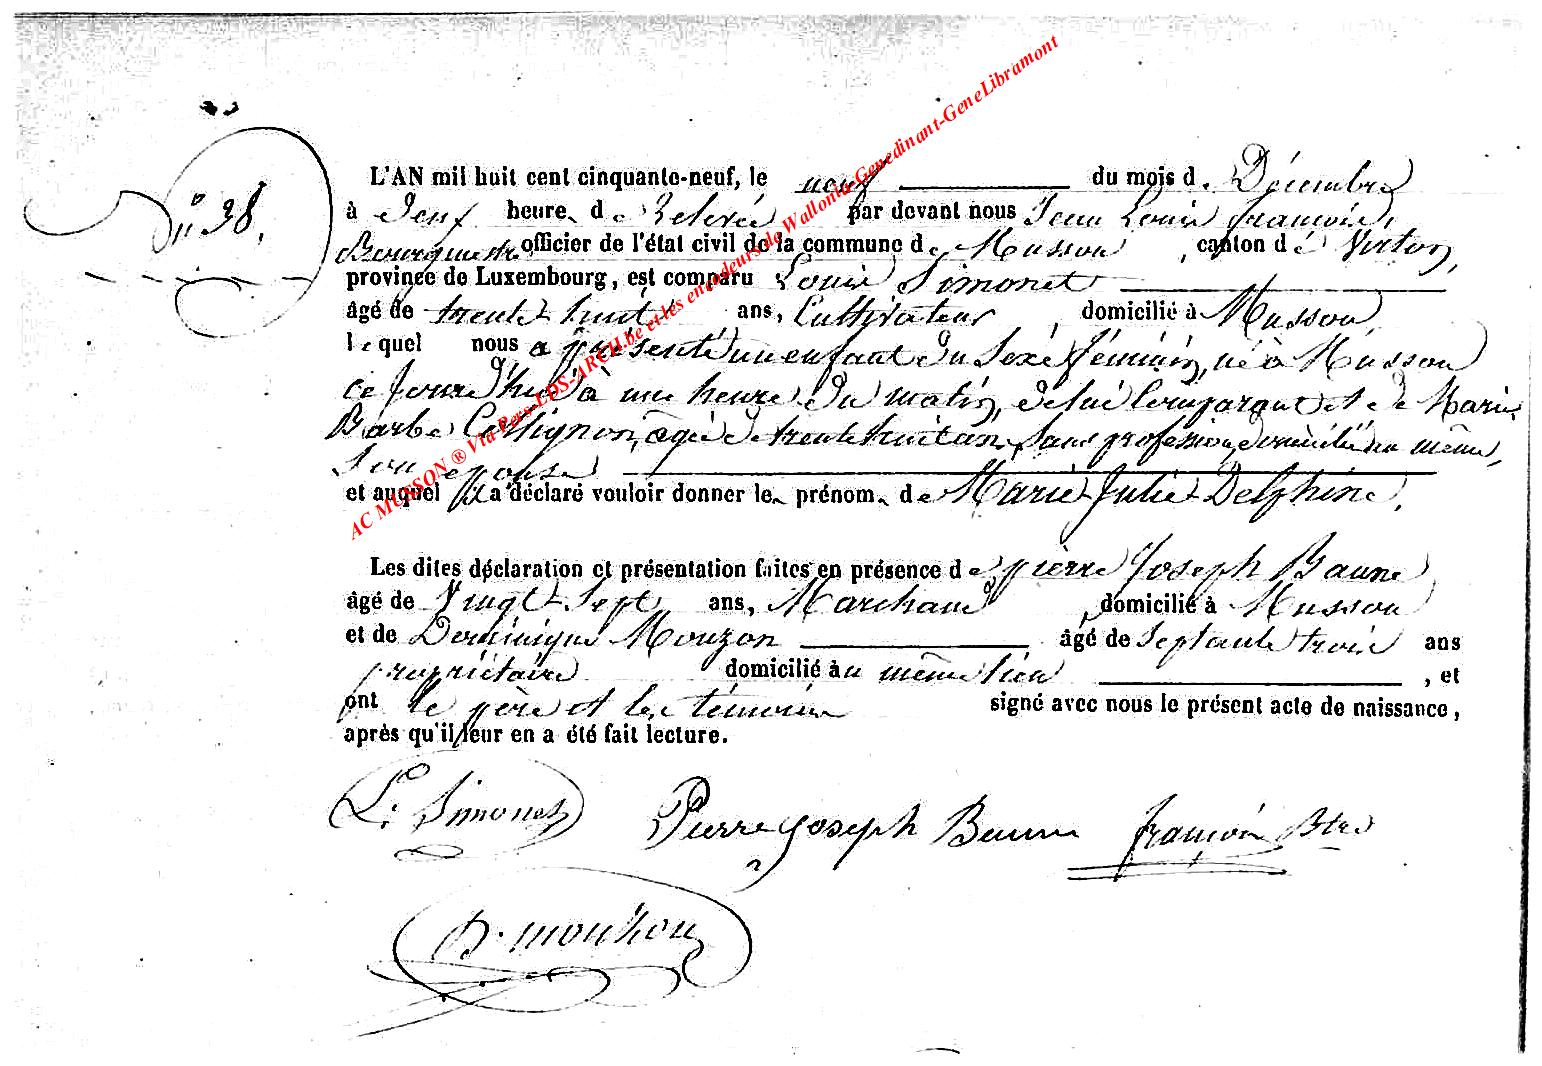 N° 38.
L'AN mil huit cent cinquante-neuf, le neuf du mois de Décembre
à deux heures de Relevée par devant nous Jean Louis françois,
Bourgmestre officier de l'état civil de la commune de Musson, canton de Virton,
province de Luxembourg, est comparu Louis Simonet
âgé de trente huit ans, Cultivateur, domicilié à Musson,
lequel nous a présenté un enfant du Sexe féminin, né à Musson
ce jourd'hui à une heure du matin, de lui Comparant et de Marie
Barbe, âgée de trente huit ans, Sans profession, domiciliée au même,
Son épouse
et auquel il a déclaré vouloir donner les prénoms de Marie-Julie-Delphine.
Les dites déclaration et présentation faites en présence de pierre Joseph Baune
âgé de Vingt-Sept ans, Marchand, domicilié à Musson
et de Dominique Mouzon âgé de Septante trois ans
propriétaire domicilié au même lieu, et
ont le père et les témoins signé avec nous le présent acte de naissance,
après qu'il leur en a été fait lecture.
L. Simonet Pierre joseph Baune françois Btre
D. mouzon
AC MUSSON ® Via Pers-LDS-ARCH.be et les encodeurs de Wallonia-Genedinant-GeneLibramont